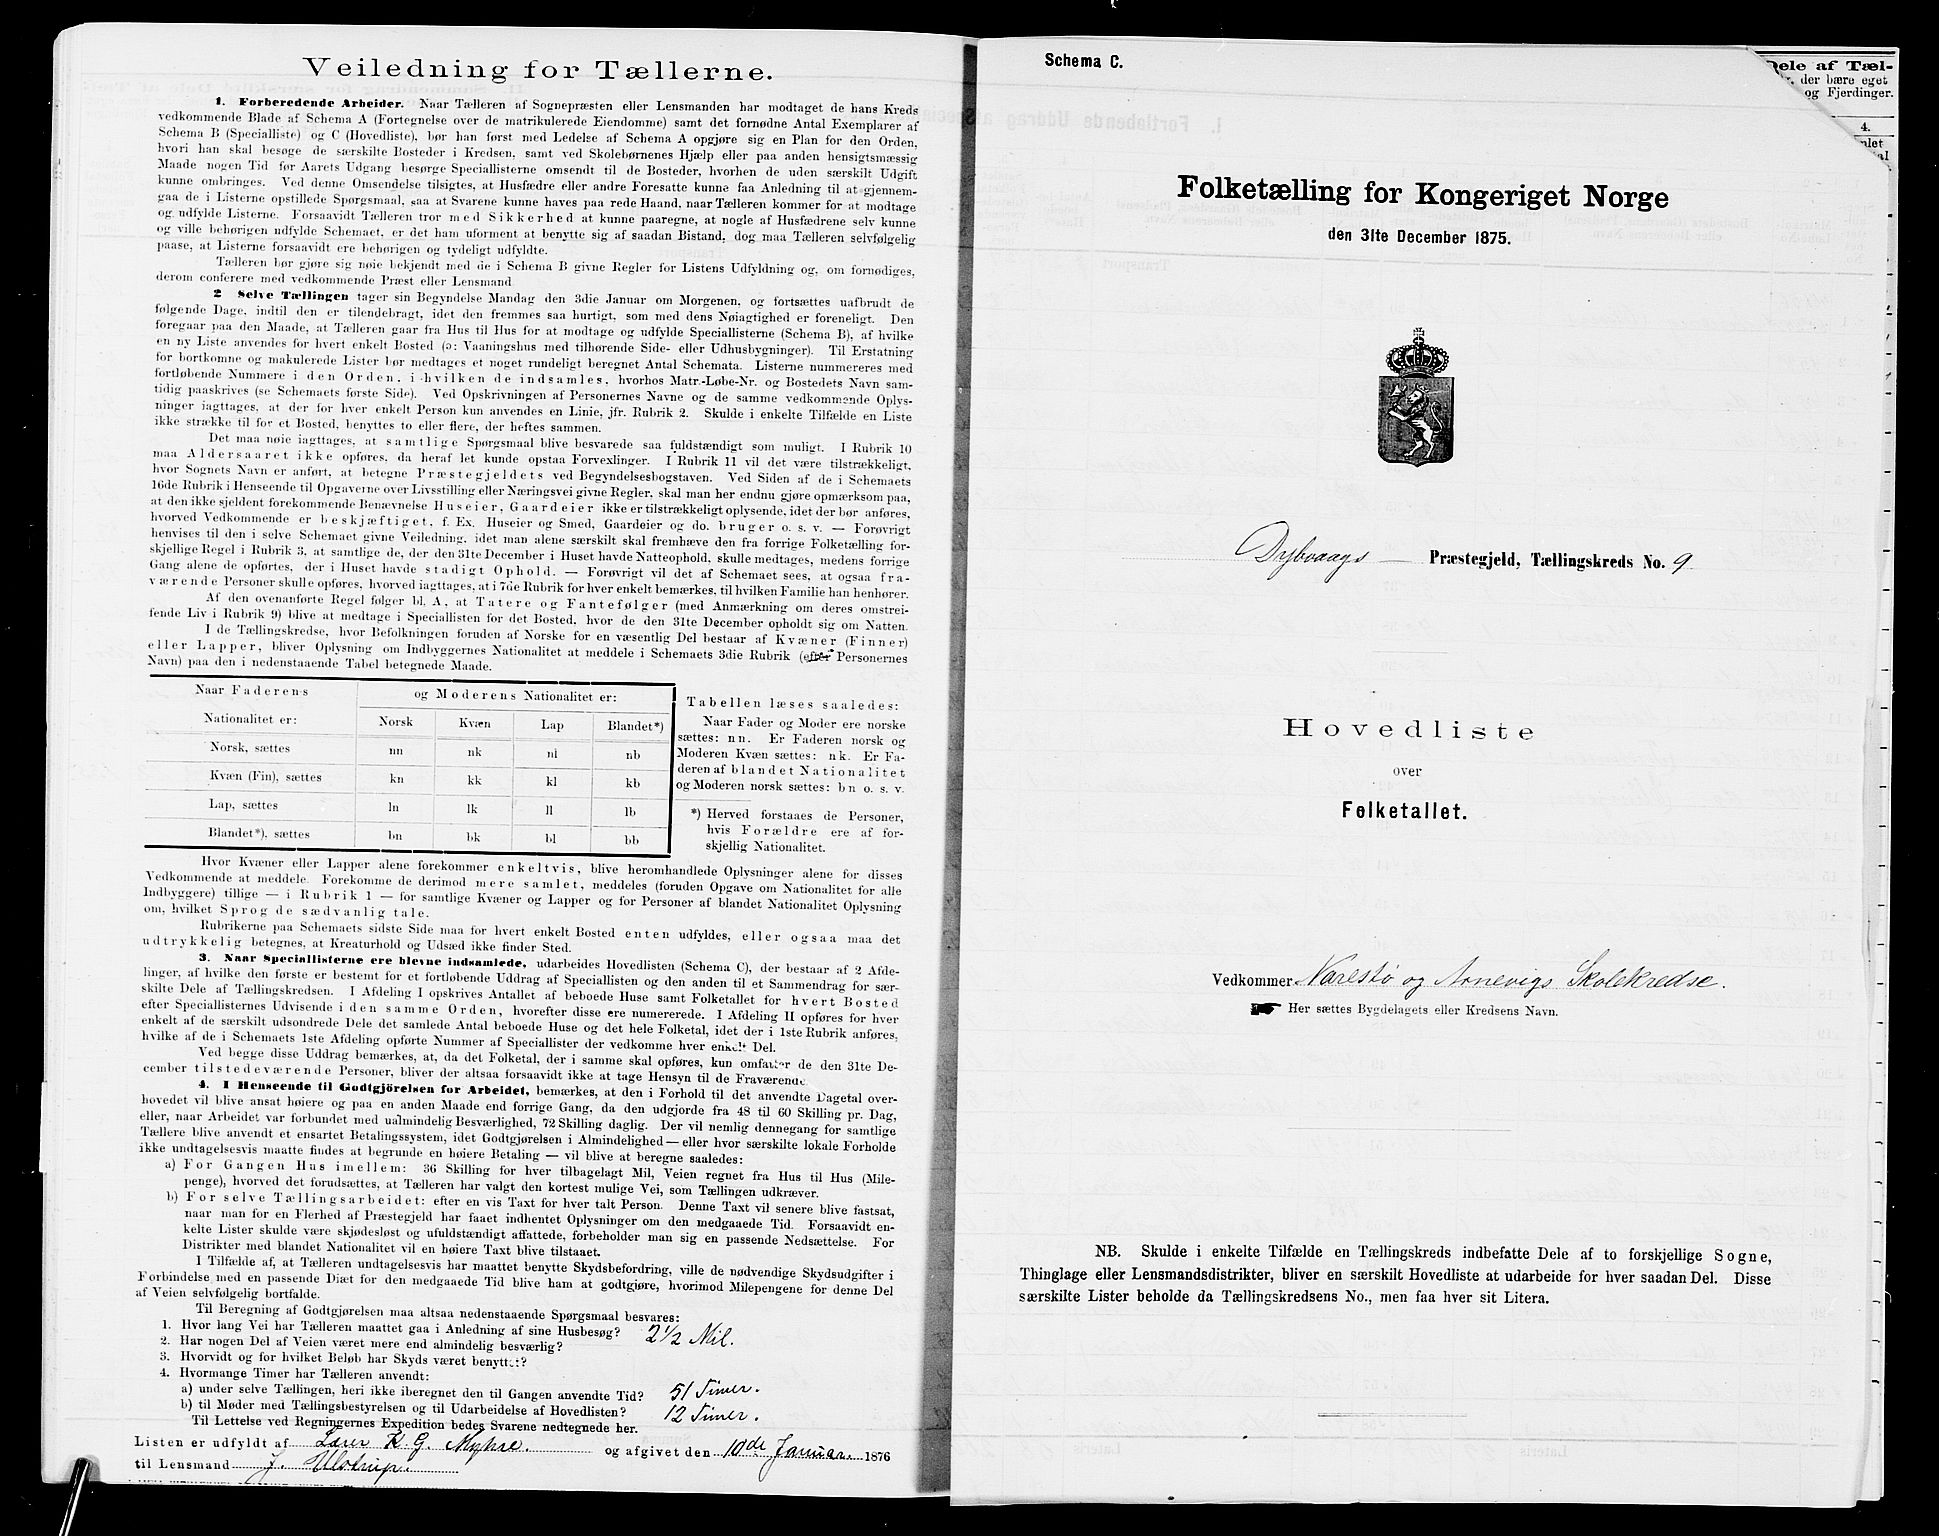 Veiledning for Tællerne.
1. Forberedende Arbeider. Naar Tælleren af Sognepræsten eller Lensmanden har modtaget de hans Kreds
vedkommende Blade af Schema A (Fortegnelse over de matrikulerede Eiendomme) samt det fornødne Antal Exemplarer af
Schema B (Specialliste) og C (Hovedliste), bør han først med Ledelse af Schema A opgjøre sig en Plan for den Orden,
hvori han skal besøge de særskilte Bosteder i Kredsen, samt ved Skolebørnenes Hjælp eller paa anden hensigtsmæssig
Maade nogen Tid før Aarets Udgang besørge Speciallisterne omsendt til de Bosteder, hvorhen de uden særskilt Udgift
kunne ombringes. Ved denne Omsendelse tilsigtes, at Husfædre eller andre Foresatte kunne faa Anledning til at gjennem-
gaa de i Listerne opstillede Spørgsmaal, saa at Svarene kunne haves paa rede Haand, naar Tælleren kommer for at modtage
og udfylde Listerne. Forsaavidt Tælleren tror med Sikkerhed at kunne paaregne, at nogle af Husfædrene selv kunne
og ville behørigen udfylde Schemaet, er det ham uforment at benytte sig af saadan Bistand, dog maa Tælleren selvfølgelig
paase, at Listerne forsaavidt ere behørigen og tydeligt udfyldte.
Tælleren bør gjøre sig nøie bekjendt med de i Schema B givne Regler for Listens Udfyldning og, om fornødiges,
derom conferere med vedkommende Præst eller Lensmand
2 Selve Tællingen tager sin Begyndelse Mandag den 3die Januar om Morgenen, og fortsættes uafbrudt de
følgende Dage, indtil den er tilendebragt, idet den fremmes saa hurtigt, som med dens Nøiagtighed er foreneligt. Den
foregaar paa den Maade, at Tælleren gaar fra Hus til Hus for at modtage og udfylde Speciallisterne (Schema B), af hvilke
en ny Liste anvendes for hvert enkelt Bosted (ɔ: Vaaningshus med tilhørende Side- eller Udhusbygninger). Til Erstatning
for bortkomne og makulerede Lister bør medtages et noget rundeligt beregnet Antal Schemata. Listerne nummereres med
fortløbende Nummere i den Orden, i hvilken de indsamles, hvorhos Matr.-Løbe-Nr. og Bostedets Navn sam-
tidig paaskrives (se Schemaets første Side). Ved Opskrivningen af Personernes Navne og de samme vedkommende Oplys-
ninger iagttages, at der for hver enkelt Person kun anvendes en Linie, jfr. Rubrik 2. Skulde i enkelte Tilfælde en Liste
ikke strække til for et Bosted, benyttes to eller flere, der heftes sammen.
Det maa nøie iagttages, at samtlige Spørgsmaal blive besvarede saa fuldstændigt som muligt. I Rubrik 10
maa Aldersaaret ikke opføres, da heraf let kunde opstaa Forvexlinger. I Rubrik 11 vil det være tilstrækkeligt,
hvor Sognets Navn er anført, at betegne Præstegjeldets ved Begyndelsesbogstaven. Ved Siden af de i Schemaets
16de Rubrik i Henseende til Opgaverne over Livsstilling eller Næringsvei givne Regler, skal man her endnu gjøre opmærksom paa,
at den ikke sjeldent forekommende Benævnelse Huseier, Gaardeier ikke er tilstrækkeligt oplysende, idet der bør anføres,
hvorved Vedkommende er beskjæftiget, f. Ex. Huseier og Smed, Gaardeier og do. bruger o. s. v. — Forøvrigt
henvises til den i selve Schemaet givne Veiledning, idet man alene særskilt skal fremhæve den fra forrige Folketælling for-
skjellige Regel i Rubrik 3, at samtlige de, der den 31te December i Huset havde Natteophold, skulle medtages, medens forrige
Gang alene de opførtes, der i Huset havde stadigt Ophold. — Forøvrigt vil det af Schemaet sees, at ogsaa fra-
værende Personer skulle opføres, hvorved iagttages, at i 7de Rubrik for hver enkelt bemærkes, til hvilken Familie han henhører.
Af den ovenanførte Regel følger bl. A, at Tatere og Fantefølger (med Anmærkning om deres omstrei-
fende Liv i Rubrik 9) blive at medtage i Speciallisten for det Bosted, hvor de den 31te December opholdt sig om Natten.
I de Tællingskredse, hvor Befolkningen foruden af Norske for en væsentlig Del bestaar af Kvæner (Finner)
eller Lapper, bliver Oplysning om Indbyggernes Nationalitet at meddele i Schemaets 3die Rubrik (efter Personernes
Navn) paa den i nedenstaaende Tabel betegnede Maade.
Naar Faderens og Moderens Nationalitet er:
Nationalitet er: Norsk Kvæn Lap Blandet*)
Norsk, sættes nn nk nl nb
Kvæn (Fin), sættes kn kk kl kb
Lap, sættes ln lk ll lb
Blandet*), sættes bn bk bl bb
Tabellen læses saaledes:
Naar Fader og Moder ere norske
sættes: nn. Er Faderen norsk og
Moderen Kvæn sættes: nk. Er Fa-
deren af blandet Nationalitet
og Moderen norsk sættes: bn o. s. v.
*) Herved forstaaes de Personer,
hvis Forældre ere af for-
skjellig Nationalitet.
Hvor Kvæner eller Lapper alene forekommer enkeltvis, blive heromhandlede Oplysninger alene for disses
Vedkommende at meddele. Forekomme de derimod mere samlet, meddeles (foruden Opgave om Nationalitet for alle
Indbyggere) tillige — i Rubrik 1 — for samtlige Kvæner og Lapper og for Personer af blandet Nationalitet Oplysning
om, hvilket Sprog de sædvanlig tale.
Rubrikerne paa Schemaets sidste Side maa for hvert enkelt Bosted enten udfyldes, eller ogsaa maa det
udtrykkelig betegnes, at Kreaturhold og Udsæd ikke finder Sted.
3. Naar Speciallisterne ere blevne indsamlede, udarbeides Hovedlisten (Schema C), der bestaar af 2 Afde-
linger, af hvilke den første er bestemt for et fortløbende Uddrag af Speciallisten og den anden til et Sammendrag for sær-
skilte Dele af Tællingskredsen. I Afdeling I opskrives Antallet af beboede Huse samt Folketallet for hvert Bosted
efter Speciallisternes Udvisende i den samme Orden, hvorefter disse ere numererede. I Afdeling II opføres for hver
enkelt af de særskilt udsondrede Dele det samlede Antal beboede Huse og det hele Folketal, idet der i 1ste Rubrik anføres,
hvilke af de i Schemaets 1ste Afdeling opførte Nummer af Speciallister der vedkomme hver enkelt Del.
Ved begge disse Uddrag bemærkes, at, da det Folketal, der i samme skal opføres, kun omfatter de den 31te De-
cember tilstedeværende Personer, bliver der altsaa forsaavidt ikke at tage Hensyn til de Fraværende
4. I Henseende til Godtgjörelsen for Arbeidet, bemærkes, at den i Forhold til det anvendte Dagetal over-
hovedet vil blive ansat høiere og paa en anden Maade end forrige Gang, da den udgjorde fra 48 til 60 Skilling pr. Dag,
eller, naar Arbeidet var forbundet med ualmindelig Besværlighed, 72 Skilling daglig. Der vil nemlig dennegang for samtlige
Tællere blive anvendt et ensartet Betalingssystem, idet Godtgjørelsen i Almindelighed — eller hvor særskilte lokale Forholde
ikke undtagelsesvis maatte findes at begrunde en høiere Betaling — vil blive at beregne saaledes:
a) For Gangen Hus imellem: 36 Skilling for hver tilbagelagt Mil, Veien regnet fra Hus til Hus (Mile-
penge), hvorved det forudsættes, at Tælleren har valgt den kortest mulige Vei, som Tællingen udkræver.
b) For selve Tællingsarbeidet: efter en vis Taxt for hver talt Person. Denne Taxt vil senere blive fastsat,
naar man for en Flerhed af Præstegjeld har faaet indhentet Oplysninger om den medgaaede Tid. Forsaavidt en-
kelte Lister skulde være skjødesløst og ufuldstændigt affattede, forbeholder man sig en passende Nedsættelse. For
Distrikter med blandet Nationalitet vil en høiere Taxt blive tilstaaet.
I Tilfælde af, at Tælleren undtagelsesvis har maattet benytte Skydsbefordring, ville de nødvendige Skydsudgifter i
Forbindelse med en passende Diæt for den medgaaede Tid blive ham at godtgjøre, hvorimod Milepengene for denne Del
af Veien selvfølgelig bortfalde.
Til Beregning af Godtgjørelsen maa altsaa nedenstaaende Spørgsmaal besvares:
1. Hvor lang Vei har Tælleren maattet gaa i Anledning af sine Husbesøg? 2 1/2 Mil.
2. Har nogen Del af Veien været mere end almindelig besværlig?
3. Hvorvidt og for hvilket Beløb har Skyds været benyttet?
4. Hvormange Timer har Tælleren anvendt:
a) under selve Tællingen, heri ikke iberegnet den til Gangen anvendte Tid? 51 Timer.
b) til Møder med Tællingsbestyrelsen og til Udarbeidelse af Hovedlisten? 12 Timer.
Til Lettelse ved Regningernes Expedition bedes Svarene nedtegnede her.
Listen er udfyldt af Lærer K. G. Myhre. og afgivet den 10de Januar. 1876
til Lensmand J. Ulstrup.
Schema C.
Folketælling for Kongeriget Norge
den 31te December 1875.
Dybvaags Præstegjeld, Tællingskreds No. 9
Hovedliste
over
Folketallet.
Vedkommer Narestø og Arnevigs Skolekredse.
Her sættes Bygdelagets eller Kredsens Navn.
NB. Skulde i enkelte Tilfælde en Tællingskreds indbefatte Dele af to forskjellige Sogne,
Thinglage eller Lensmandsdistrikter, bliver en særskilt Hovedliste at udarbeide for hver saadan Del. Disse
særskilte Lister beholde da Tællingskredsens No., men faa hver sit Litera.
Dele af Tæl-
der bære eget
og Fjerdinger.
4.